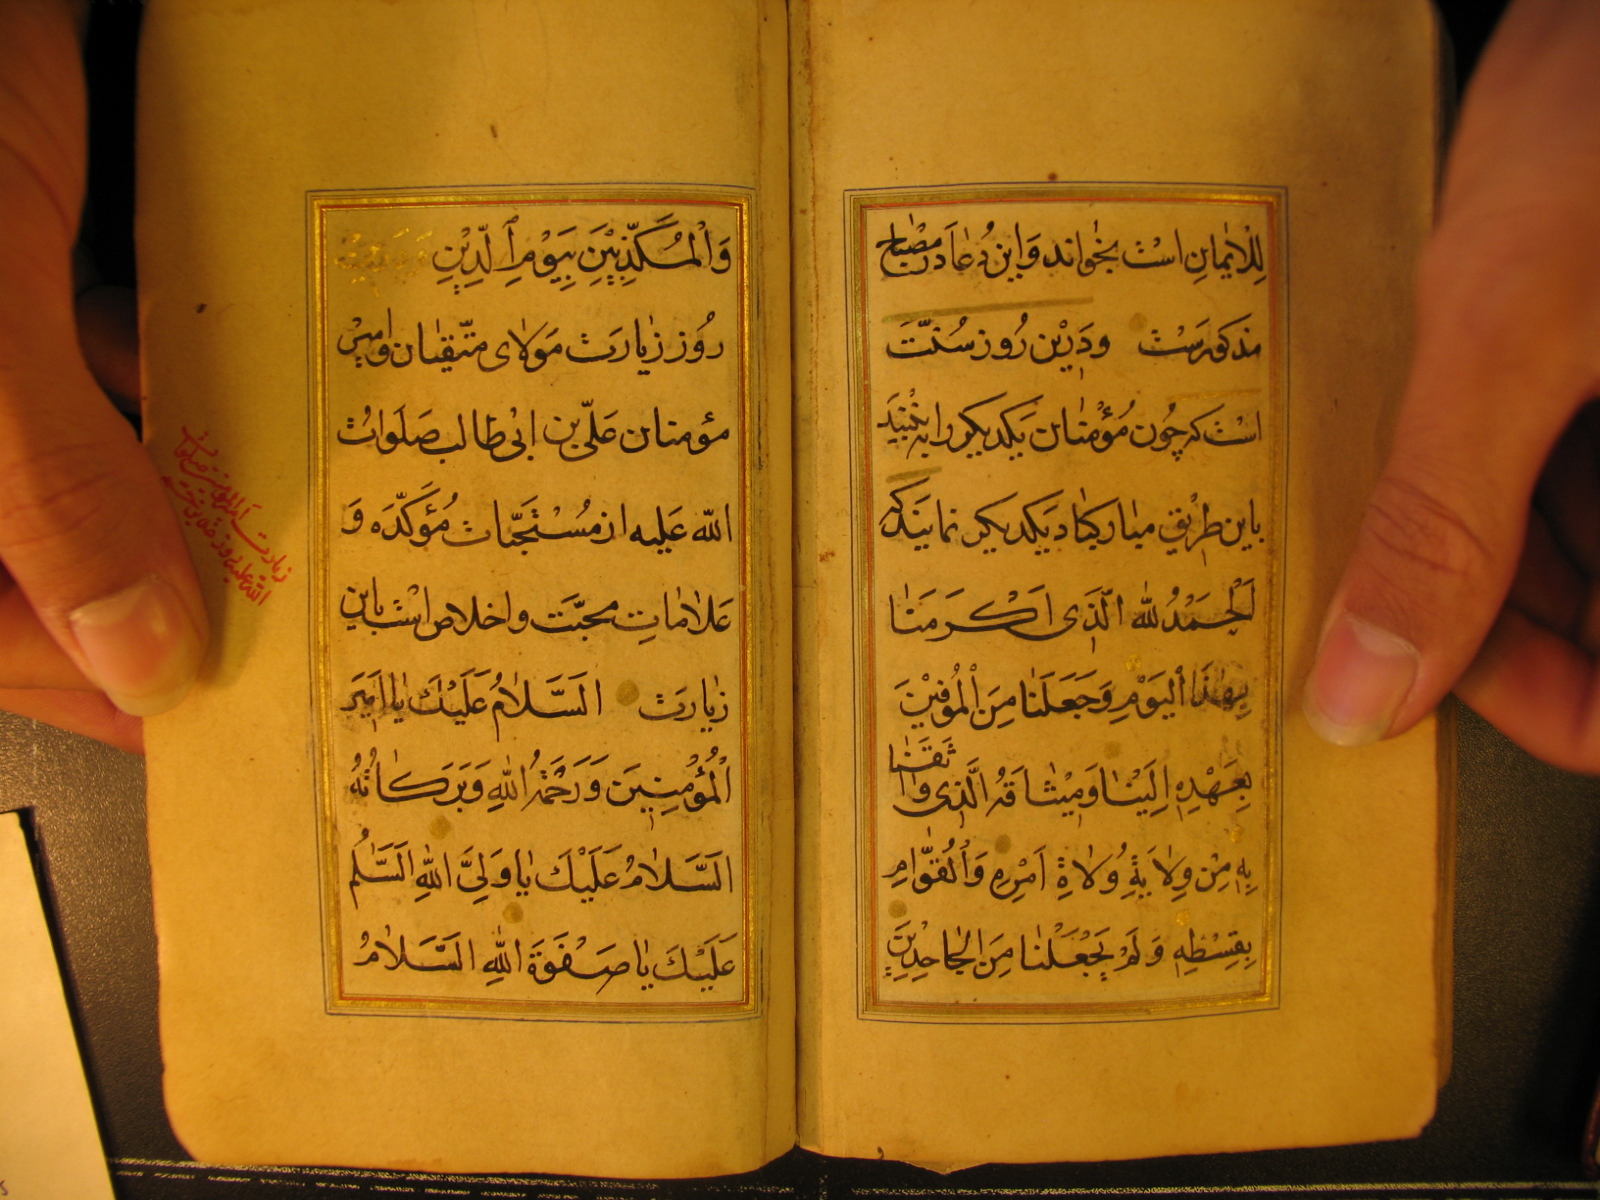 لِلْاٰیمٰانِ اسْتْ بخْوٰاند وَاین دُعٰا دَر مصْبٰاح
مذکورَسْتْ ودَرْین رُوز سُنّتَ
اسْت که چُون مُؤمْنٰان یَکدیکر را به بْینَید
باین طرْیقِ مبٰارکبٰاد یَکدیکر نمایندکه
اَلْحَمْدُ للّٰهِ الَّذَی اَکْرَمَنٰا
بِهٰذَا الْیَوْمِ وَجَعَلَنٰا مِنَ الْمُوفِیْنَ
بِعَهْدِهِ اِلَیْنٰا وَمِیْثٰاقَهُ الَّذِی وٰاثَقَنٰا
بِهِ مِنْ وِلٰایَةِ وُلٰاةِ اَمْرِهِ وَالْقُوّٰامِ
بِقِسْطِهِ وَلَمْ یَجْعَلْنٰا مِنَ الْجٰاحِدِیْنَ
وَالْمُکَذِّبِیْنَ بِیَوْمِ الدِّیْنِ
رُوز زیٰارَتْ مَوْلاٰی متّقیٰان وامیر
مؤمنان عَلّی بن ابْی طالب صَلَوٰاتْ
اللّٰه عَلیه از مسْتْحَبّات مُؤَکَّدَه وَ
عَلاٰمٰاتِ محبّتَ واخلاص اسْتْ باین
زیٰارَتْ اَلسَّلاٰمُ عَلَیْكَ یٰا اَمیَر
الْمُؤْمِنِیَن وَرَحْمَةُ اللّٰهِ وَبَرَکٰاتُهُ
اَلسَّلاٰمُ عَلَیْكَ یٰا وَلِیَّ اللّٰهِ اَلسَّلٰمُ
عَلَیْكَ یٰا صَفْوَةَ اللّٰهِ اَلسَّلاٰمُ
زیارت امیرالمؤمنین صلوات
الله علیه روز